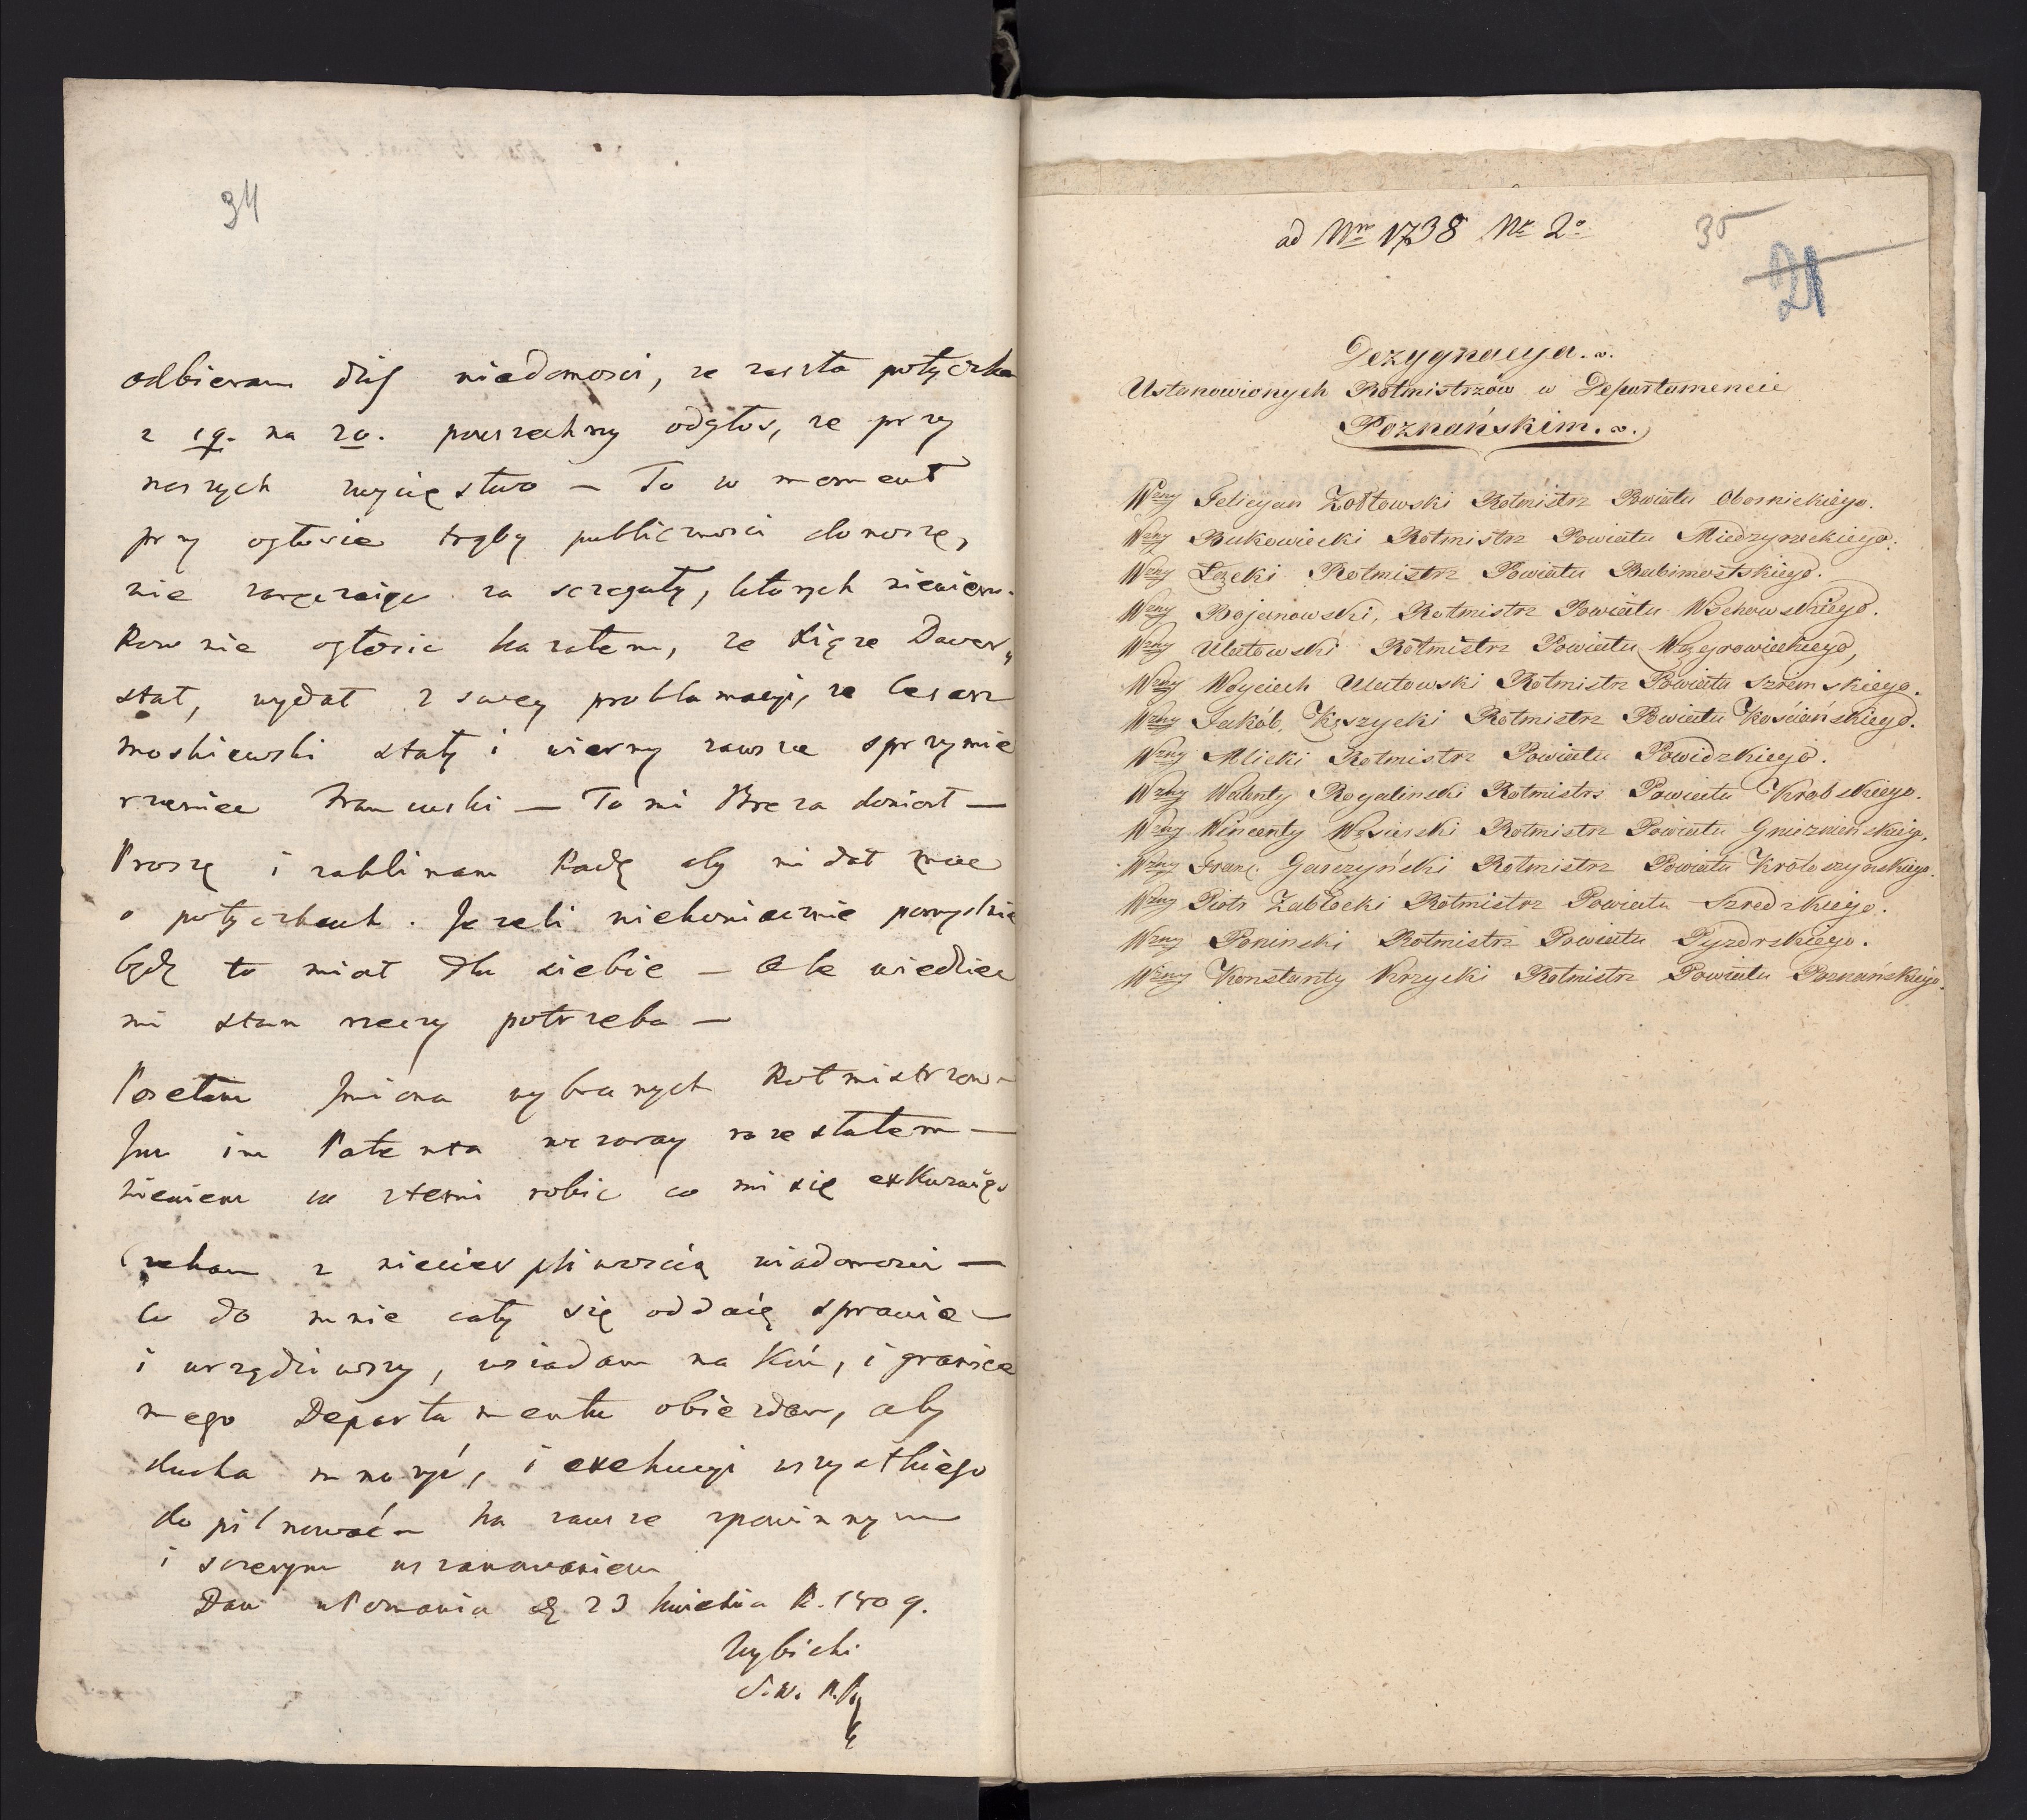 34
odbieram dziś wiadomości, ze zaszła potyczka
z 19. na 20. powszechny odgłos, ze przy
naszych zwycięstwo — To w moment
przy ogłosie trąby publiczności donoszę,
nie zaręczaiąc za szczeguły, których niewiem.
Rownie ogłosic kazałem, ze Xiąze Davou„
stat, wydał z swey proklamacyi, ze Cesarz
moskiewski stały i wierny zawsze sprzymie
rzeniec Francuski — To mi Breza doniosł —
Proszę i zaklinam Radę aby mi dał znac
o potyczkach. Jezeli niekoniecznie pomyslnie
będę to miał dla siebie — Ale wiedziec
mi stan rzeczy potrzeba —
Posełam Jmiona wybranych Rotmistrzow —
Juz im Patenta wczoray rozesłałem —
niewiem co ztemi robic co mi się exkuzuią
Czekam z niecierpliwoscią wiadomosci —
Co do mnie cały się oddaię sprawie —
i urządziwszy, wsiadam na Kuń, i granice
mego Departamentu obiezdzam, aby
ducha mnozyć, i exekucyi wszystkiego
dopilnować — Na zawsze zpowinnym
i szczerym uszanowaniem
Dan w Poznaniu dą 23 kwietnia R. 1809.
Wybicki
S.W.
ad Nrm 1738 Nr 2o
35
21
Dezygnacya.
Ustanowionych Rotmistrzów w Departamencie
Poznańskim.
Wzny Felicyan Zołtowski Rotmistrz Powiatu Obornickiego.
Wzny Bukowiecki Rotmistrz Powiatu Miedzyrzeckiego.
Wzny Łęcki Rotmistrz Powiatu Babimostskiego.
Wzny Bojanowski, Rotmistrz Powiatu Wschowskiego.
Wzny Ulatowski Rotmistrz Powiatu Wągrowieckiego,
Wzny Woyciech Ulatowski Rotmistrz Powiatu Szremskiego.
Wzny Jakób Kęszycki Rotmistrz Powiatu Kościańskiego.
Wzny Mlicki Rotmistrz Powiatu Powidzkiego.
Wzny Walenty Rogalinski Rotmistrz Powiatu Krobskiego.
Wzny Wincenty Węsierski Rotmistrz Powiatu Gnieznienskiego.
Wzny Franc. Garczyński Rotmistrz Powiatu Krotoszynskiego.
Wzny Piotr Zabłocki Rotmistrz Powiatu Szredzkiego.
Wzny Poninski Rotmistrz Powiatu Pyzdrskiego.
Wzny Konstanty Krzycki Rotmistrz Powiatu Poznańskiego.